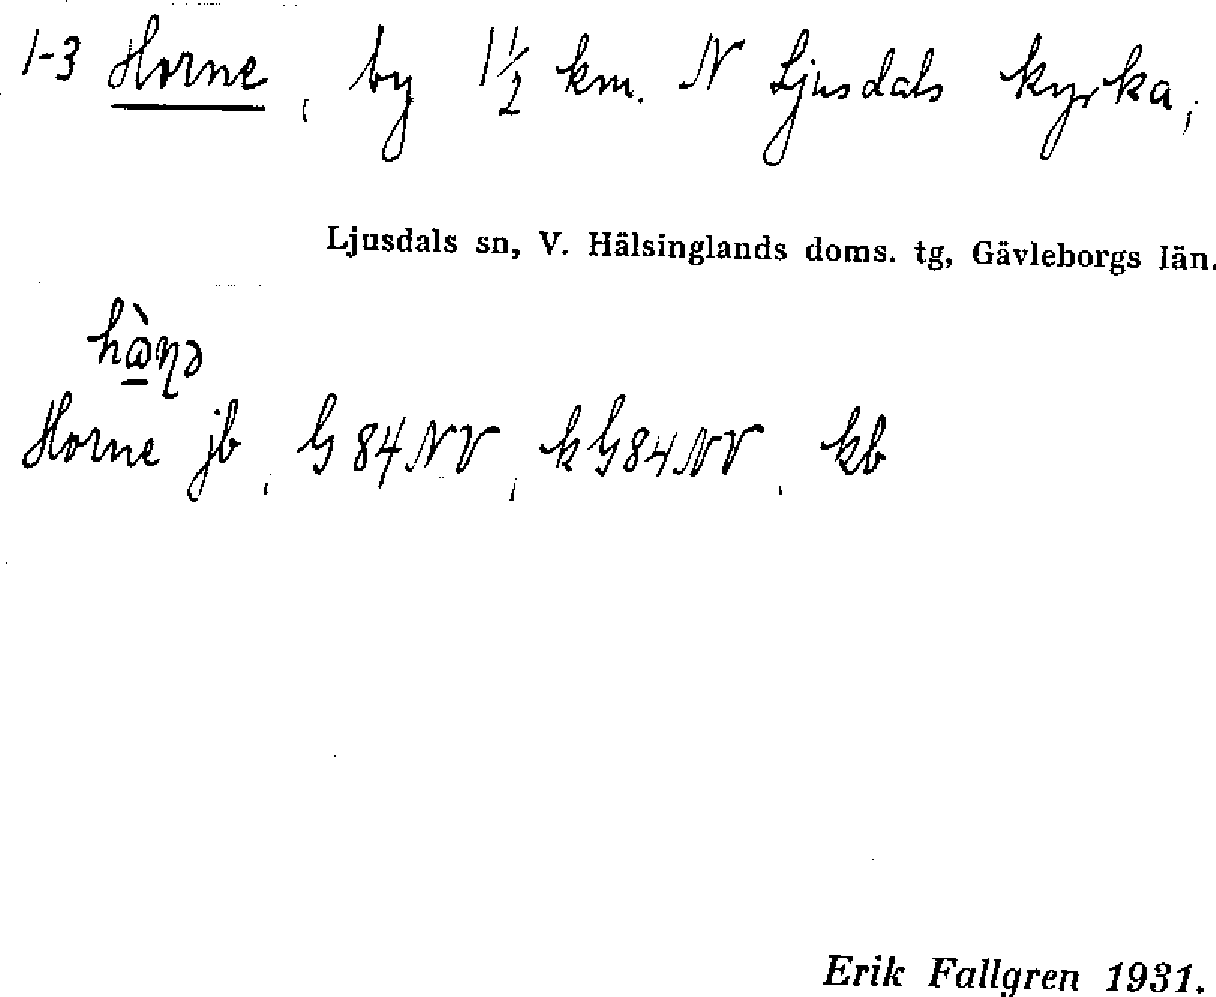 1-3 Horne, by 1½ km. N Ljusdals kyrka,
Ljusdals sn, V. Hälsinglands doms. tg, Gävleborgs län.
Horne jb, G 84 NV, k G 84 NV, kb
Erik Fallgren 1931.